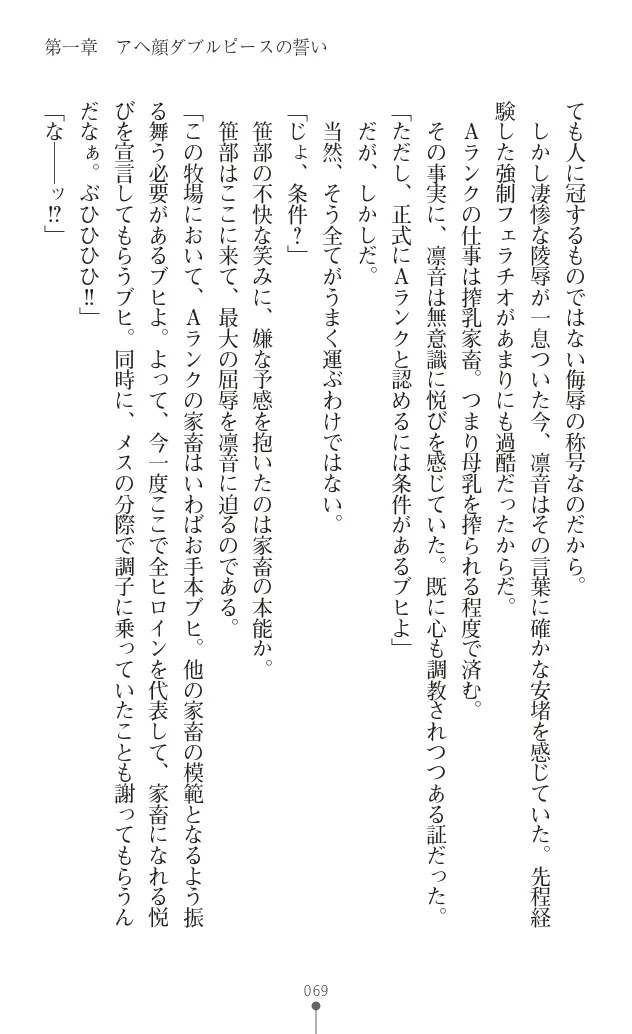 第一章　アヘ顔ダブルピースの誓い
ても人に冠するものではない侮辱の称号なのだから。
　しかし凄惨な陵辱が一息ついた今、凛音はその言葉に確かな安堵を感じていた。先程経
験した強制フェラチオがあまりにも過酷だったからだ。
　Ａランクの仕事は搾乳家畜。つまり母乳を搾られる程度で済む。
　その事実に、凛音は無意識に悦びを感じていた。既に心も調教されつつある証だった。
「ただし、正式にＡランクと認めるには条件があるブヒよ」
　だが、しかしだ。
　当然、そう全てがうまく運ぶわけではない。
「じょ、条件？」
　笹部の不快な笑みに、嫌な予感を抱いたのは家畜の本能か。
　笹部はここに来て、最大の屈辱を凛音に迫るのである。
「この牧場において、Ａランクの家畜はいわばお手本ブヒ。他の家畜の模範となるよう振
る舞う必要があるブヒよ。よって、今一度ここで全ヒロインを代表して、家畜になれる悦
びを宣言してもらうブヒ。同時に、メスの分際で調子に乗っていたことも謝ってもらうん
だなぁ。ぶひひひひ‼」
「な――ッ⁉」
069